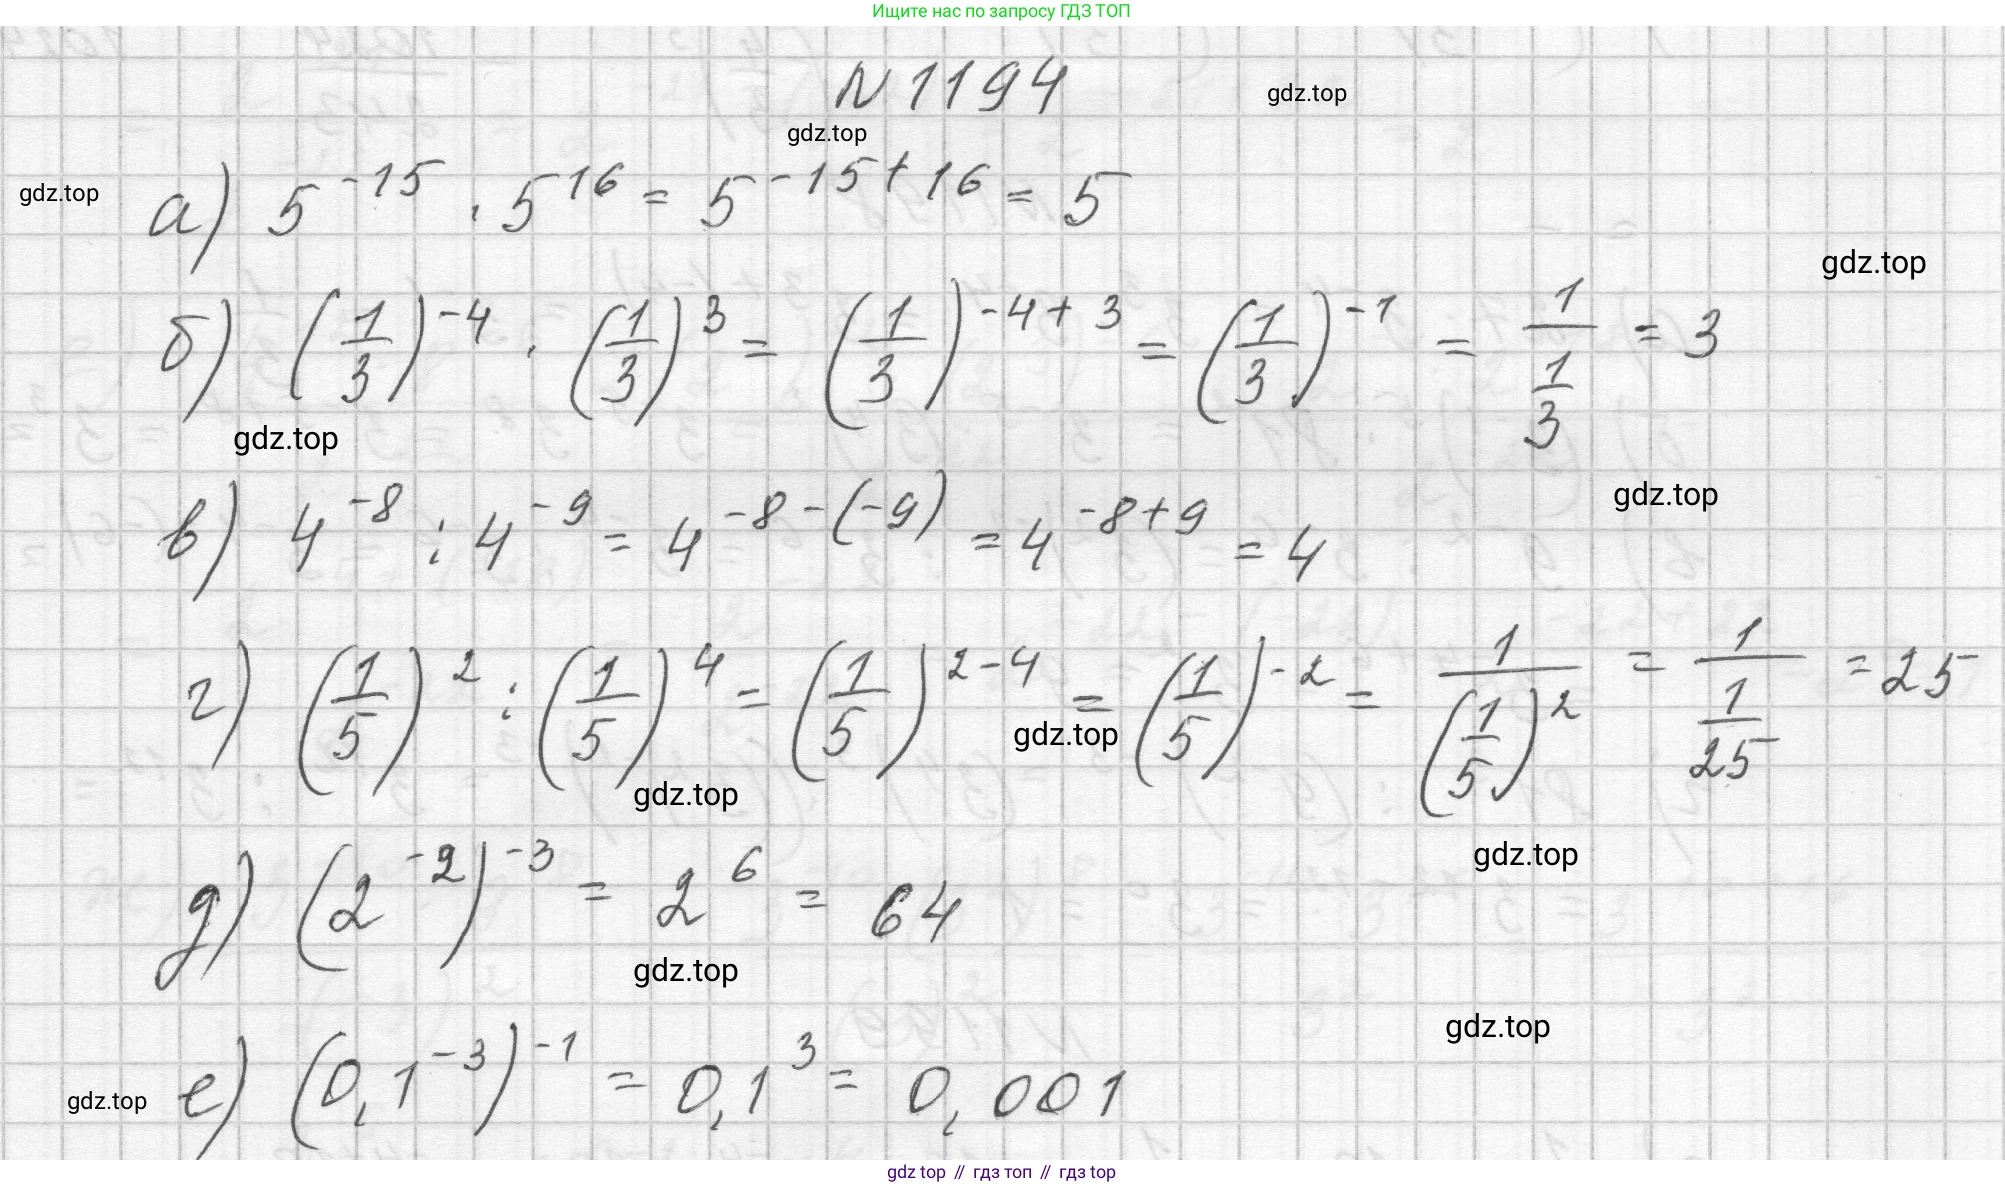 Ищите нас по запросу ГДЗ ТОП
N 1194
gdz.top
gdz.top
gdz.top
а) 5^{-15} · 5^{16} = 5^{-15+16} = 5
gdz.top
б) (1/3)^{-4} · (1/3)^3 = (1/3)^{-4+3} = (1/3)^{-1} = 1/(1/3) = 3
gdz.top
gdz.top
в) 4^{-8} : 4^{-9} = 4^{-8-(-9)} = 4^{-8+9} = 4
г) (1/5)^2 : (1/5)^4 = (1/5)^{2-4} = (1/5)^{-2} = 1/(1/5)^2 = 1/(1/25) = 25
gdz.top
gdz.top
gdz.top
д) (2^{-2})^{-3} = 2^6 = 64
gdz.top
gdz.top
gdz.top
е) (0,1^{-3})^{-1} = 0,1^3 = 0,001
gdz top // гдз топ // гдз top